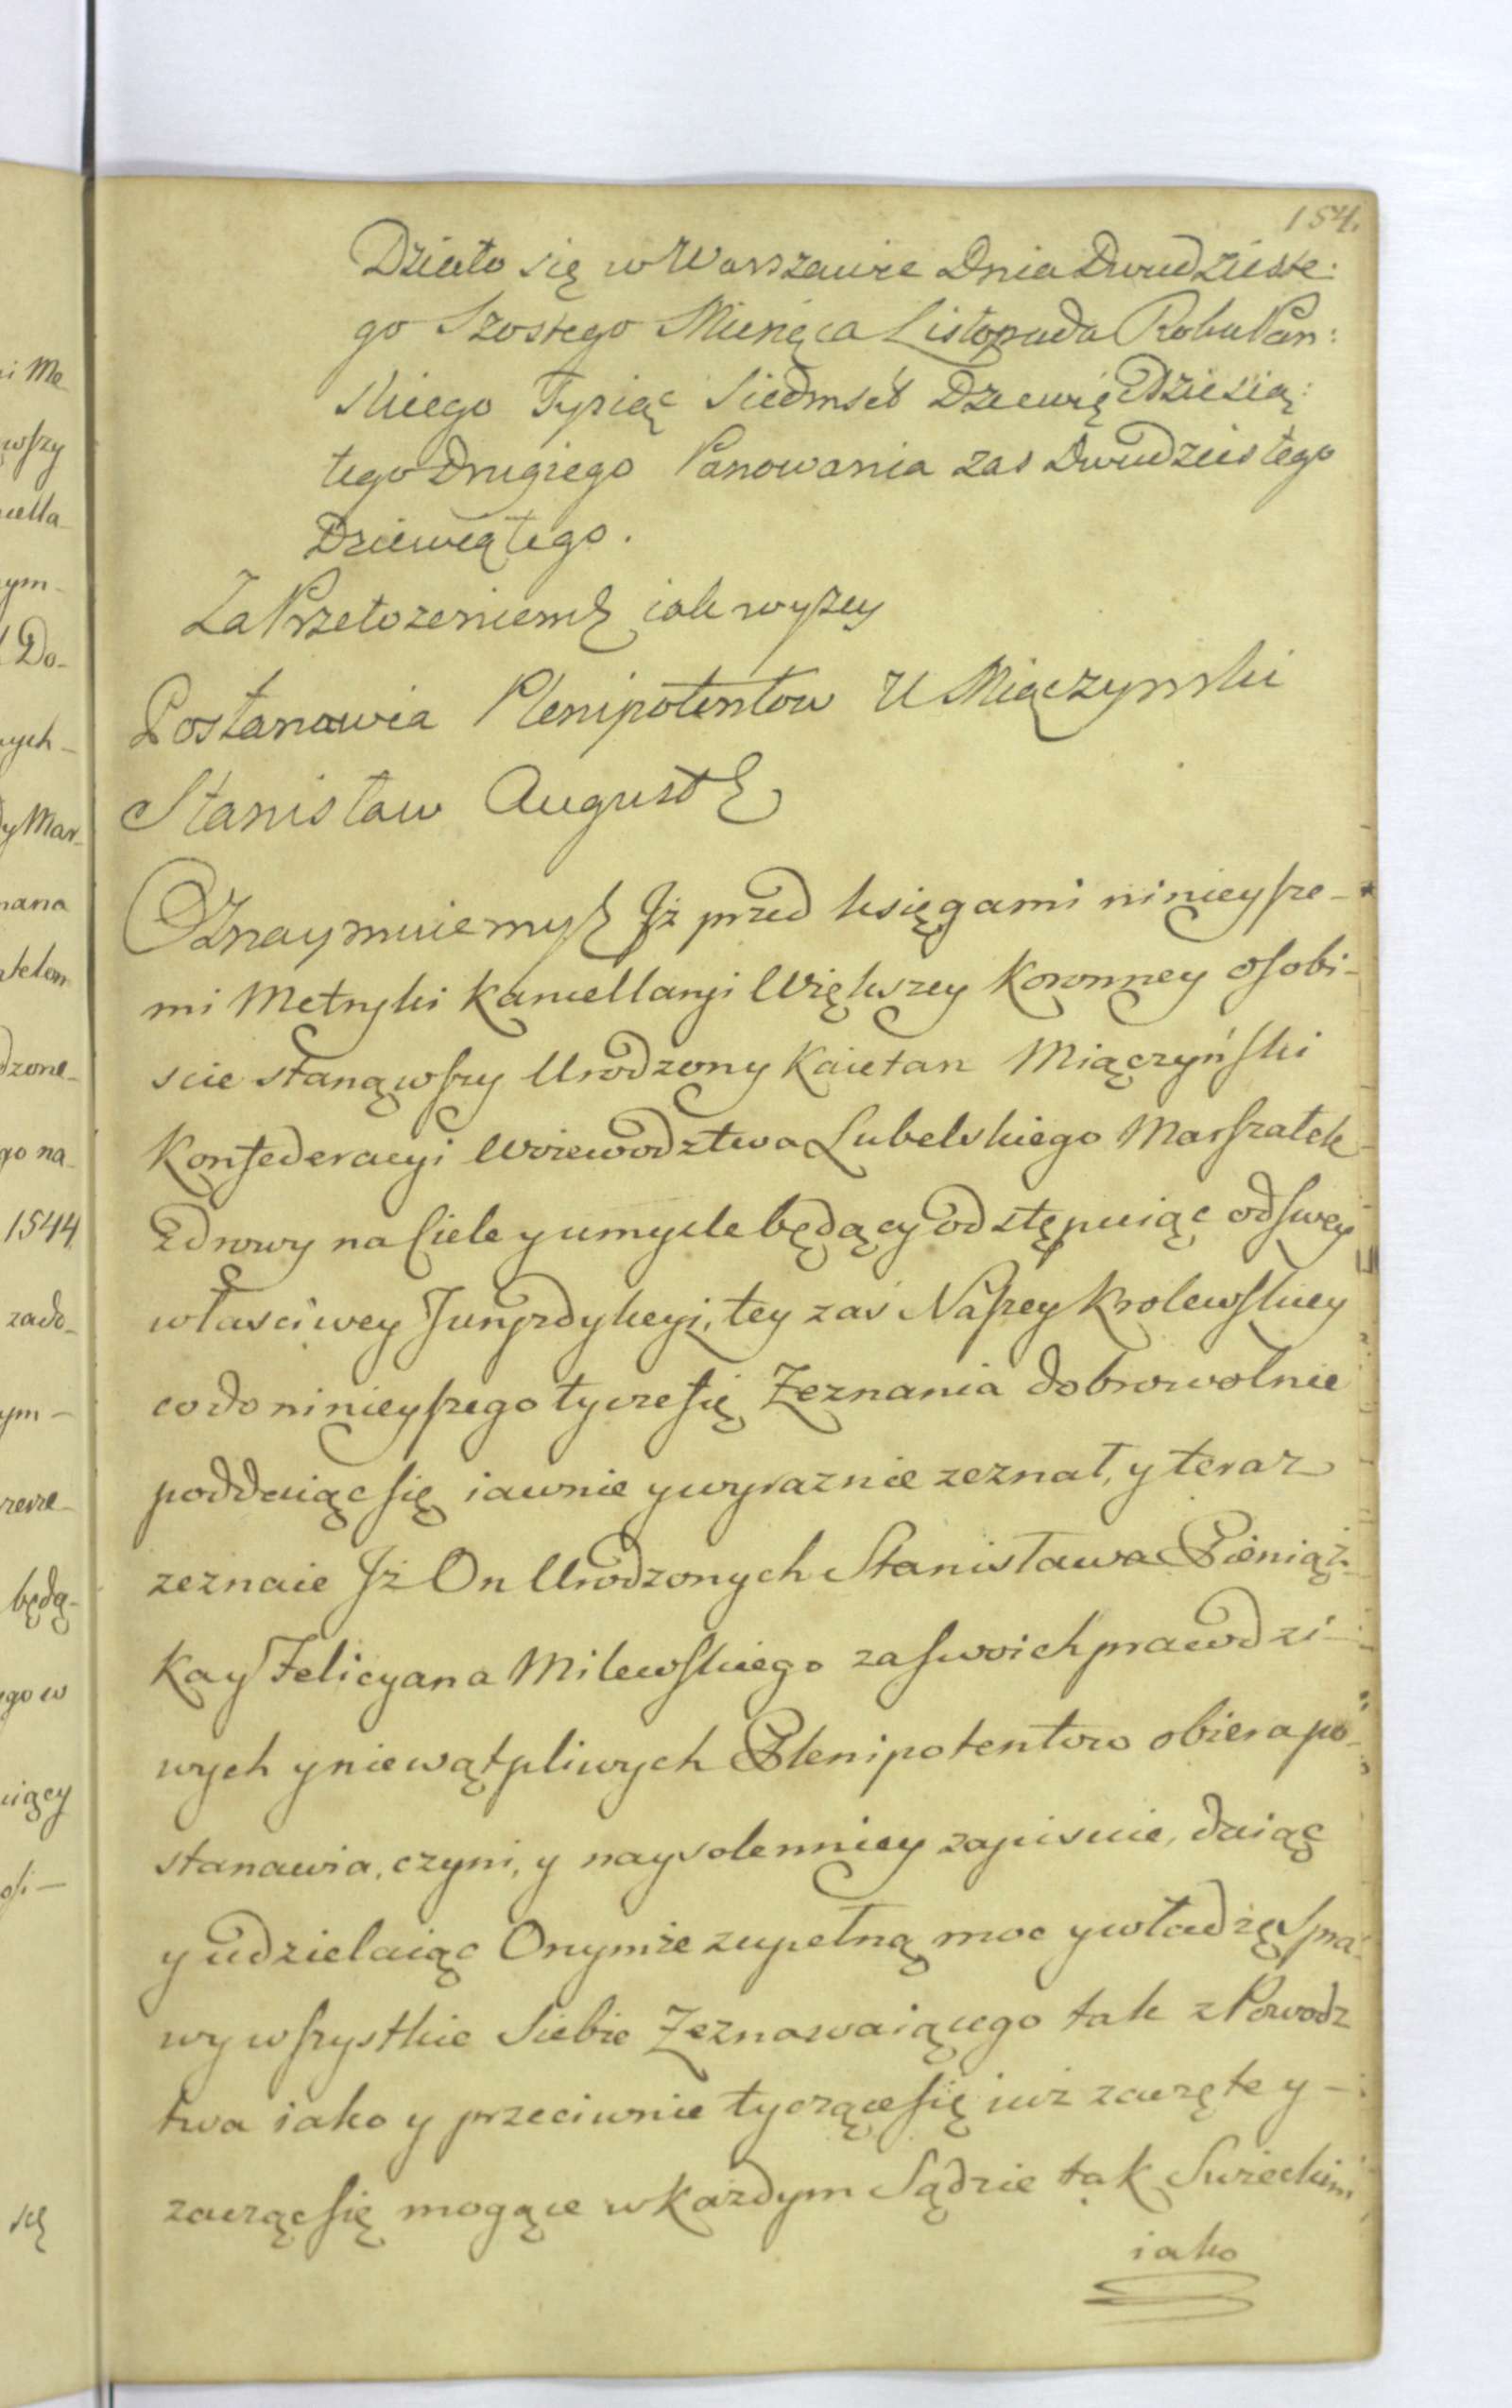 154.
Działo się w Warszawie Dnia Dwudzieste:
go Szostego Miesięca Listopada Roku Pan:
skiego Tysiąc Siedmset Dziewięćdziesią:
tego Drugiego Panowania zas Dwudziestego
Dziewiątego.
Za Przełożeniem jak wyżey
Postanawia Plenipotentow U Miączynski
Stanisław August
Oznaymuiemy Jż przed księgami ninieysze-
mi Metryki Kancellaryi Większey Koronney osobi-
scie stanąwszy Urodzony Kaietan Miączyński
Konfederacyi Woiewodztwa Lubelskiego Marszałek
Zdrowy na Ciele y umysle będący odstępuiąc od swey
własciwey Juryzdykcyi, tey zaś Naszey Krolewskiey
co do ninieyszego tycze się Zeznania dobrowolnie
poddaiąc się iawnie y wyraznie zeznał, y teraz
zeznaie Jż On Urodzonych Stanisława Pieniąż-
ka y Felicyana Milewskiego za swoich prawdzi-
wych y niewątpliwych Plenipotentow obiera po-
stanawia, czyni, y naysolenniey zapisuie, daiąc
y udzielaiąc Onymże zupełną moc y władzę Spra-
wy wszystkie Siebie Zeznawaiącego tak z Powodz
twa iako y przeciwnie tyczące się iuż zaczęte y -
zacząc się mogące w każdym Sądzie tak Swieckim
iako
i Me
wszy
cella
ym-
Do-
ych-
y Mar-
nana
dzone-
go na-
1544
zado-
ym-
będą-
go w
uiący